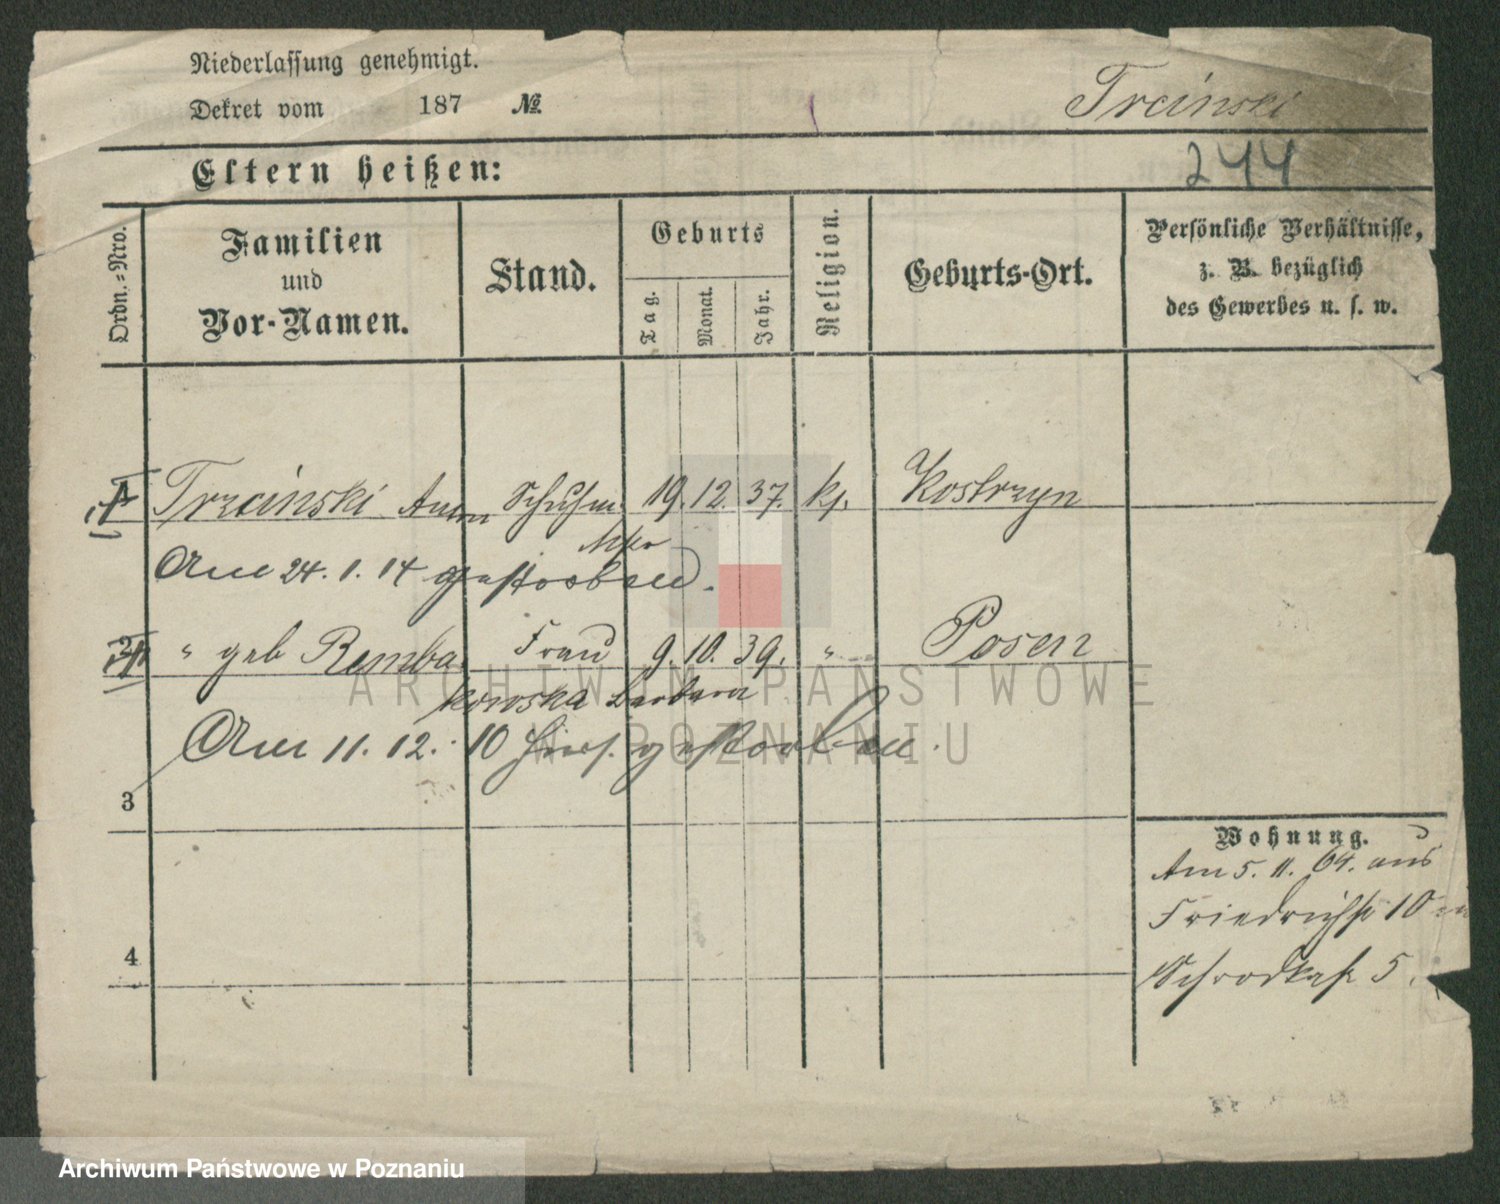 Niederlassung genehmigt.
Dekret vom 187 №
Trcinski
Eltern heißen:
244
Ordn.-Nro.
Familien
und
Vor-Namen.
Stand.
Geburts
Tag.
Monat.
Jahr.
Religion.
Geburts-Ort.
Persönliche Verhältnisse,
z. B. bezüglich
des Gewerbes u. s. w.
1 Trzcinski Anton Schuhm. 19. 12. 37. kt. Kostrzyn
Am 24. 1. 14 gestorben.
2 " geb Remba Frau 9. 10. 39. " Posen
kowska Barbara
Am 11. 12. 10 hier gestorben.
3
Wohnung.
Am 5. 11. 04. aus
Friedrichstr 10 in
Schrodkastr 5.
4
ARCHIWUM PAŃSTWOWE
W POZNANIU
Archiwum Państwowe w Poznaniu